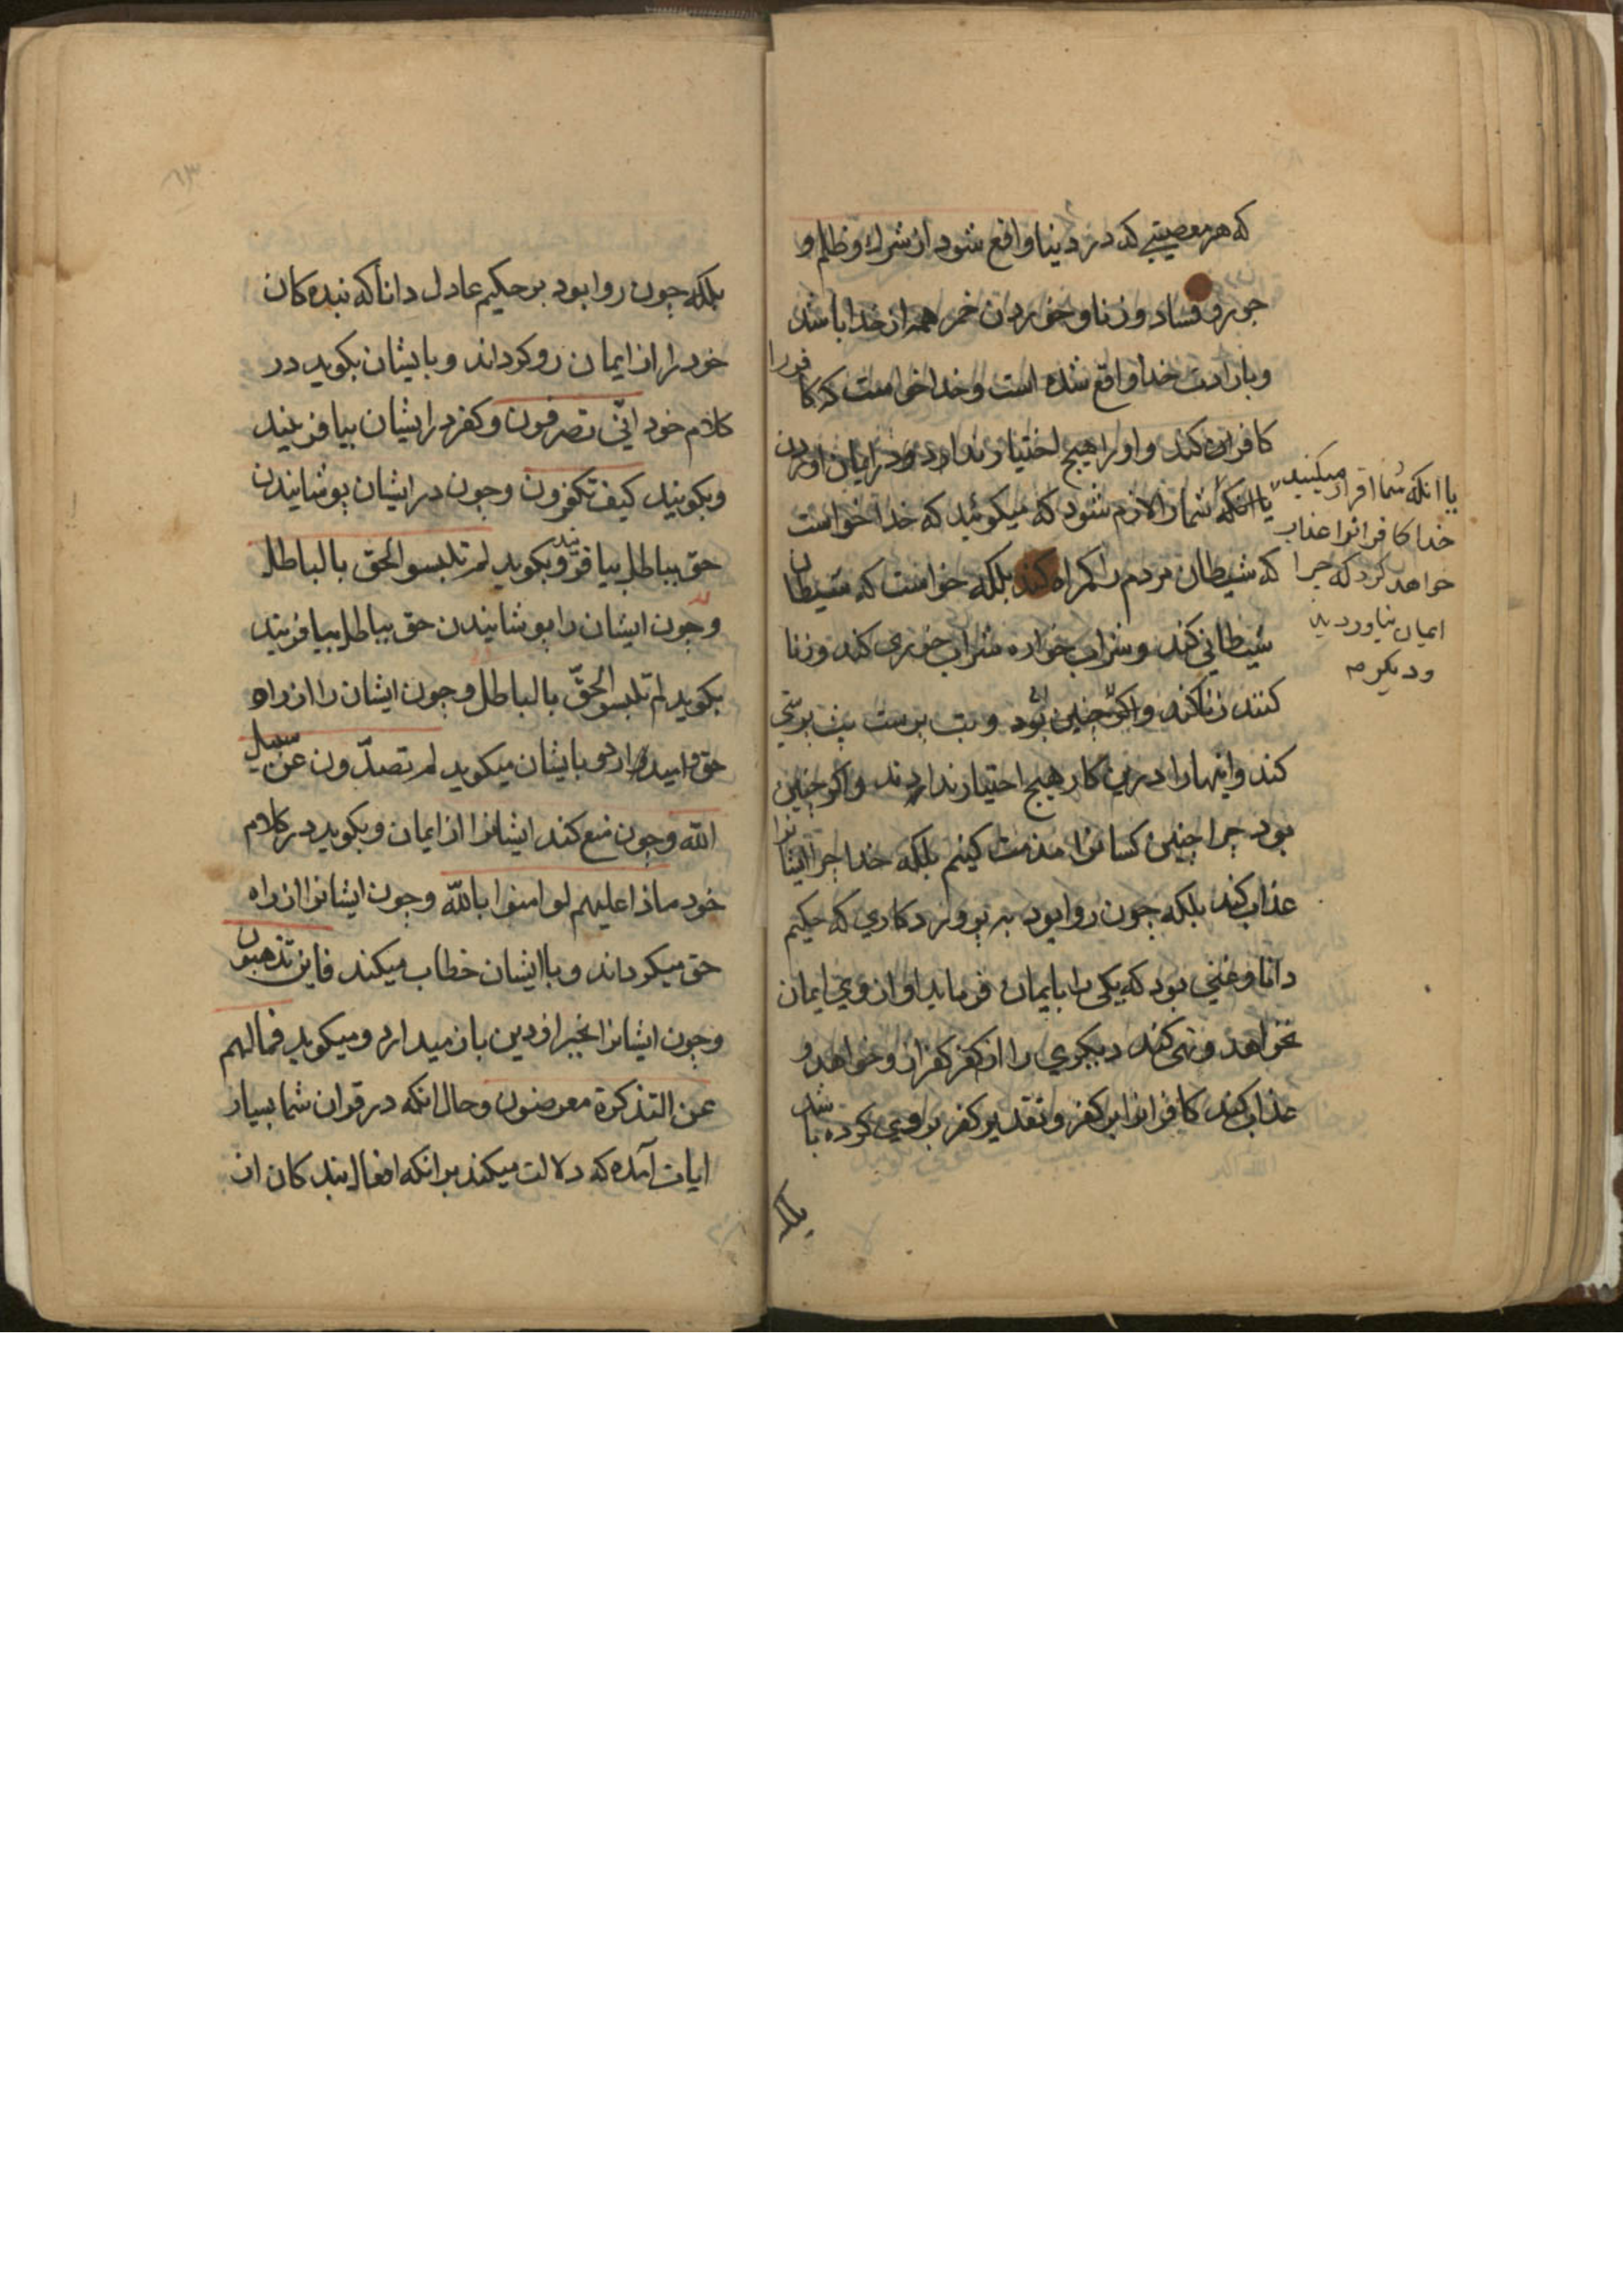 که هر معصیتی که در دینا واقع شود از شرك و ظلم و
جور و فساد و زنا و خوردن خمر همه از خدا باشد
و بارادت خدا واقع شده است و خدا خواست که کافررا
کافران کند و اورا هیچ اختیار ندارد و در ایمان اوردن
یا انکه شمارا لازم شود که میکوئید که خدا خواست
که شیطان مردم را کمراه کند بلکه خواست که شیطان
شیطانی کند و شراب خواره شراب خوری کند و زنا
کنند زنا کند و اکر چنین بود و بت برست بت برستی
کند و اینهارا درین کار هیچ اختیار ندارند و اکر چنین
بود چرا چنین کسانرا مذمت کینم بلکه خدا چرا ایشانرا
عذاب کند بلکه چون روا بود بر پرورد کاری که حکیم
دانا و غنی بود که یکی را بایمان فرماید او از وی ایمان
نخواهد و نهی کند دیکری را از کفر کفر از و خواهد و
عذاب کند کافرانرا بر کفر و تقدیر کفر بروی کرده باشد
بلکه
با انکه شما اقرار میکنید
خدا کافرانرا عذاب
خواهد کرد که چرا
ایمان نیاوردید
و دیکر صه
۶۳
بلکه چون روا بود بر حکیم عادل دانا که بنده کان
خود را از ایمان رو کرداند و بایشان بکوید در
کلام خود انّی تصرفون و کفر در ایشان بیافرینید
و بکویند کیف تکفرون و چون در ایشان پوشانیدن
حق بباطل بیافریند و بکوید لم تلبسوا الحق بالباطل
و چون ایشان را پوشانیدن حق بباطل بیافریند
بکوید لم تلبسو الحقّ بالباطل و چون ایشان را از راه
حق بایشان میکوید لم تصدّون عن سبیل
الله و چون منع کند ایشانرا از ایمان و بکوید در کلام
خود ماذا علیهم لو امنوا بالله و چون ایشانرا از راه
حق میکرداند و با ایشان خطاب میکند فاین تذهبون
و چون ایشانرا بخیر از دین باز میدارد و میکوید فمالهم
عن التذکرة معرضون و حال انکه در قران شما بسیار
ایات آمده که دلالت میکند بر انکه افعال بندکان از